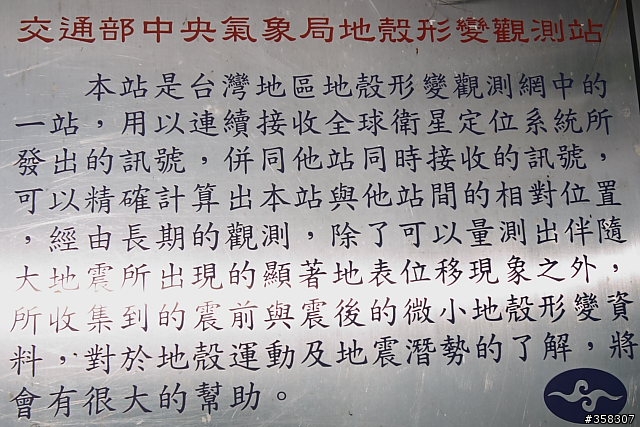 交通部中央氣象局地殼形變觀測站
本站是台灣地區地殼形變觀測網中的
一站，用以連續接收全球衛星定位系統所
發出的訊號，併同他站同時接收的訊號，
可以精確計算出本站與他站間的相對位置
，經由長期的觀測，除了可以量測出伴隨
大地震所出現的顯著地表位移現象之外，
所收集到的震前與震後的微小地殼形變資
料，對於地殼運動及地震潛勢的了解，將
會有很大的幫助。
#358307